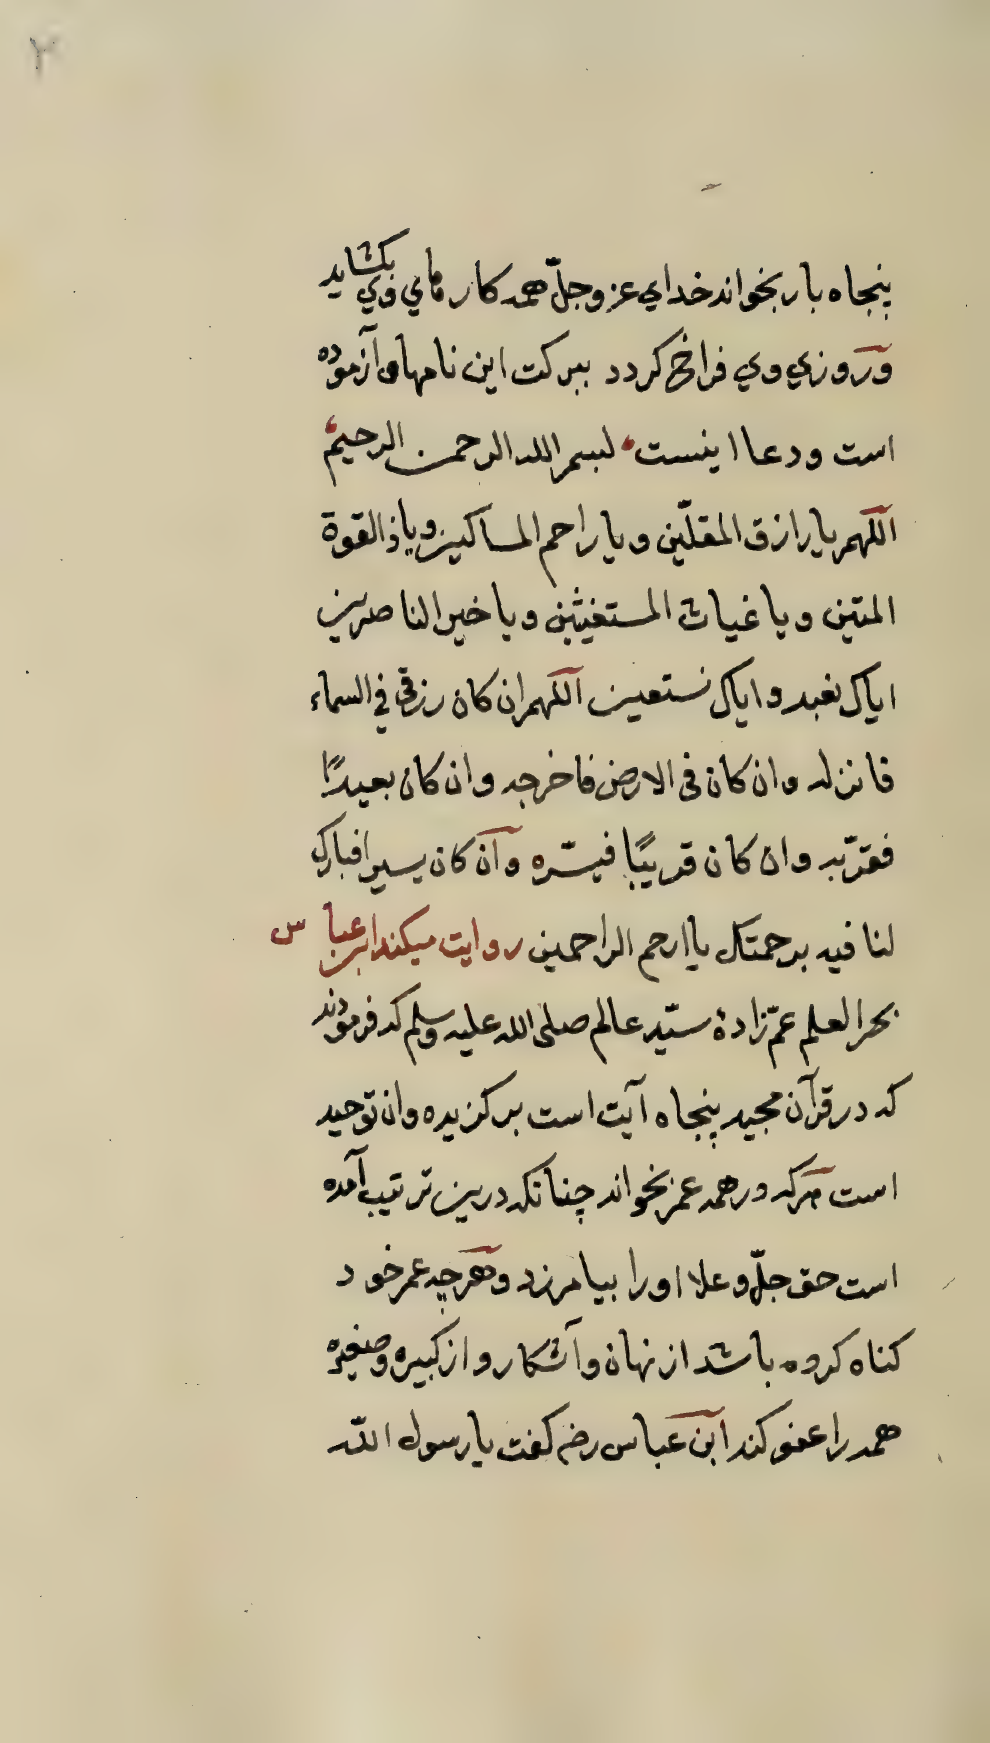 ۲
پنجاه بار بخواند خدای عز وجلّ همه کارهای وی بکشاید
وروزی وی فراخ کردد ببرکت این نامهاو آزموده
است ودعا اینست بسم الله الرحمن الرحیم
اللهم یا رازق المقلّین و یا راحم المساکین ویا ذالقوة
المتین و یا غیاث المستغیثین و یا خیر الناصرین
ایاک نعبد و ایاک نستعین اللهم ان کان رزقی فی السماء
فانزله وان کان فی الارض فاخرجه وان کان بعیدًا
فقرّبه وان کان قریبًا فیسّره وان کان یسیرا فبارک
لنا فیه برحمتک یا ارحم الراحمین روایت میکند ابن عباس
بحر العلم عمّ زادهٔ سیّد عالم صلی الله علیه وسلم که فرمودند
که در قرآن مجید پنجاه آیت است برکزیده وان توحید
است هرکه در همه عمر بخواند چنانکه درین ترتیب آمده
است حق جلّ و علا اورا بیامرزد وهرچه عمر خود
کناه کرده باشد از نهان وآشکار و از کبیره وصغیره
همه را عفو کند ابن عباس رضہ کفت یا رسول اللّه